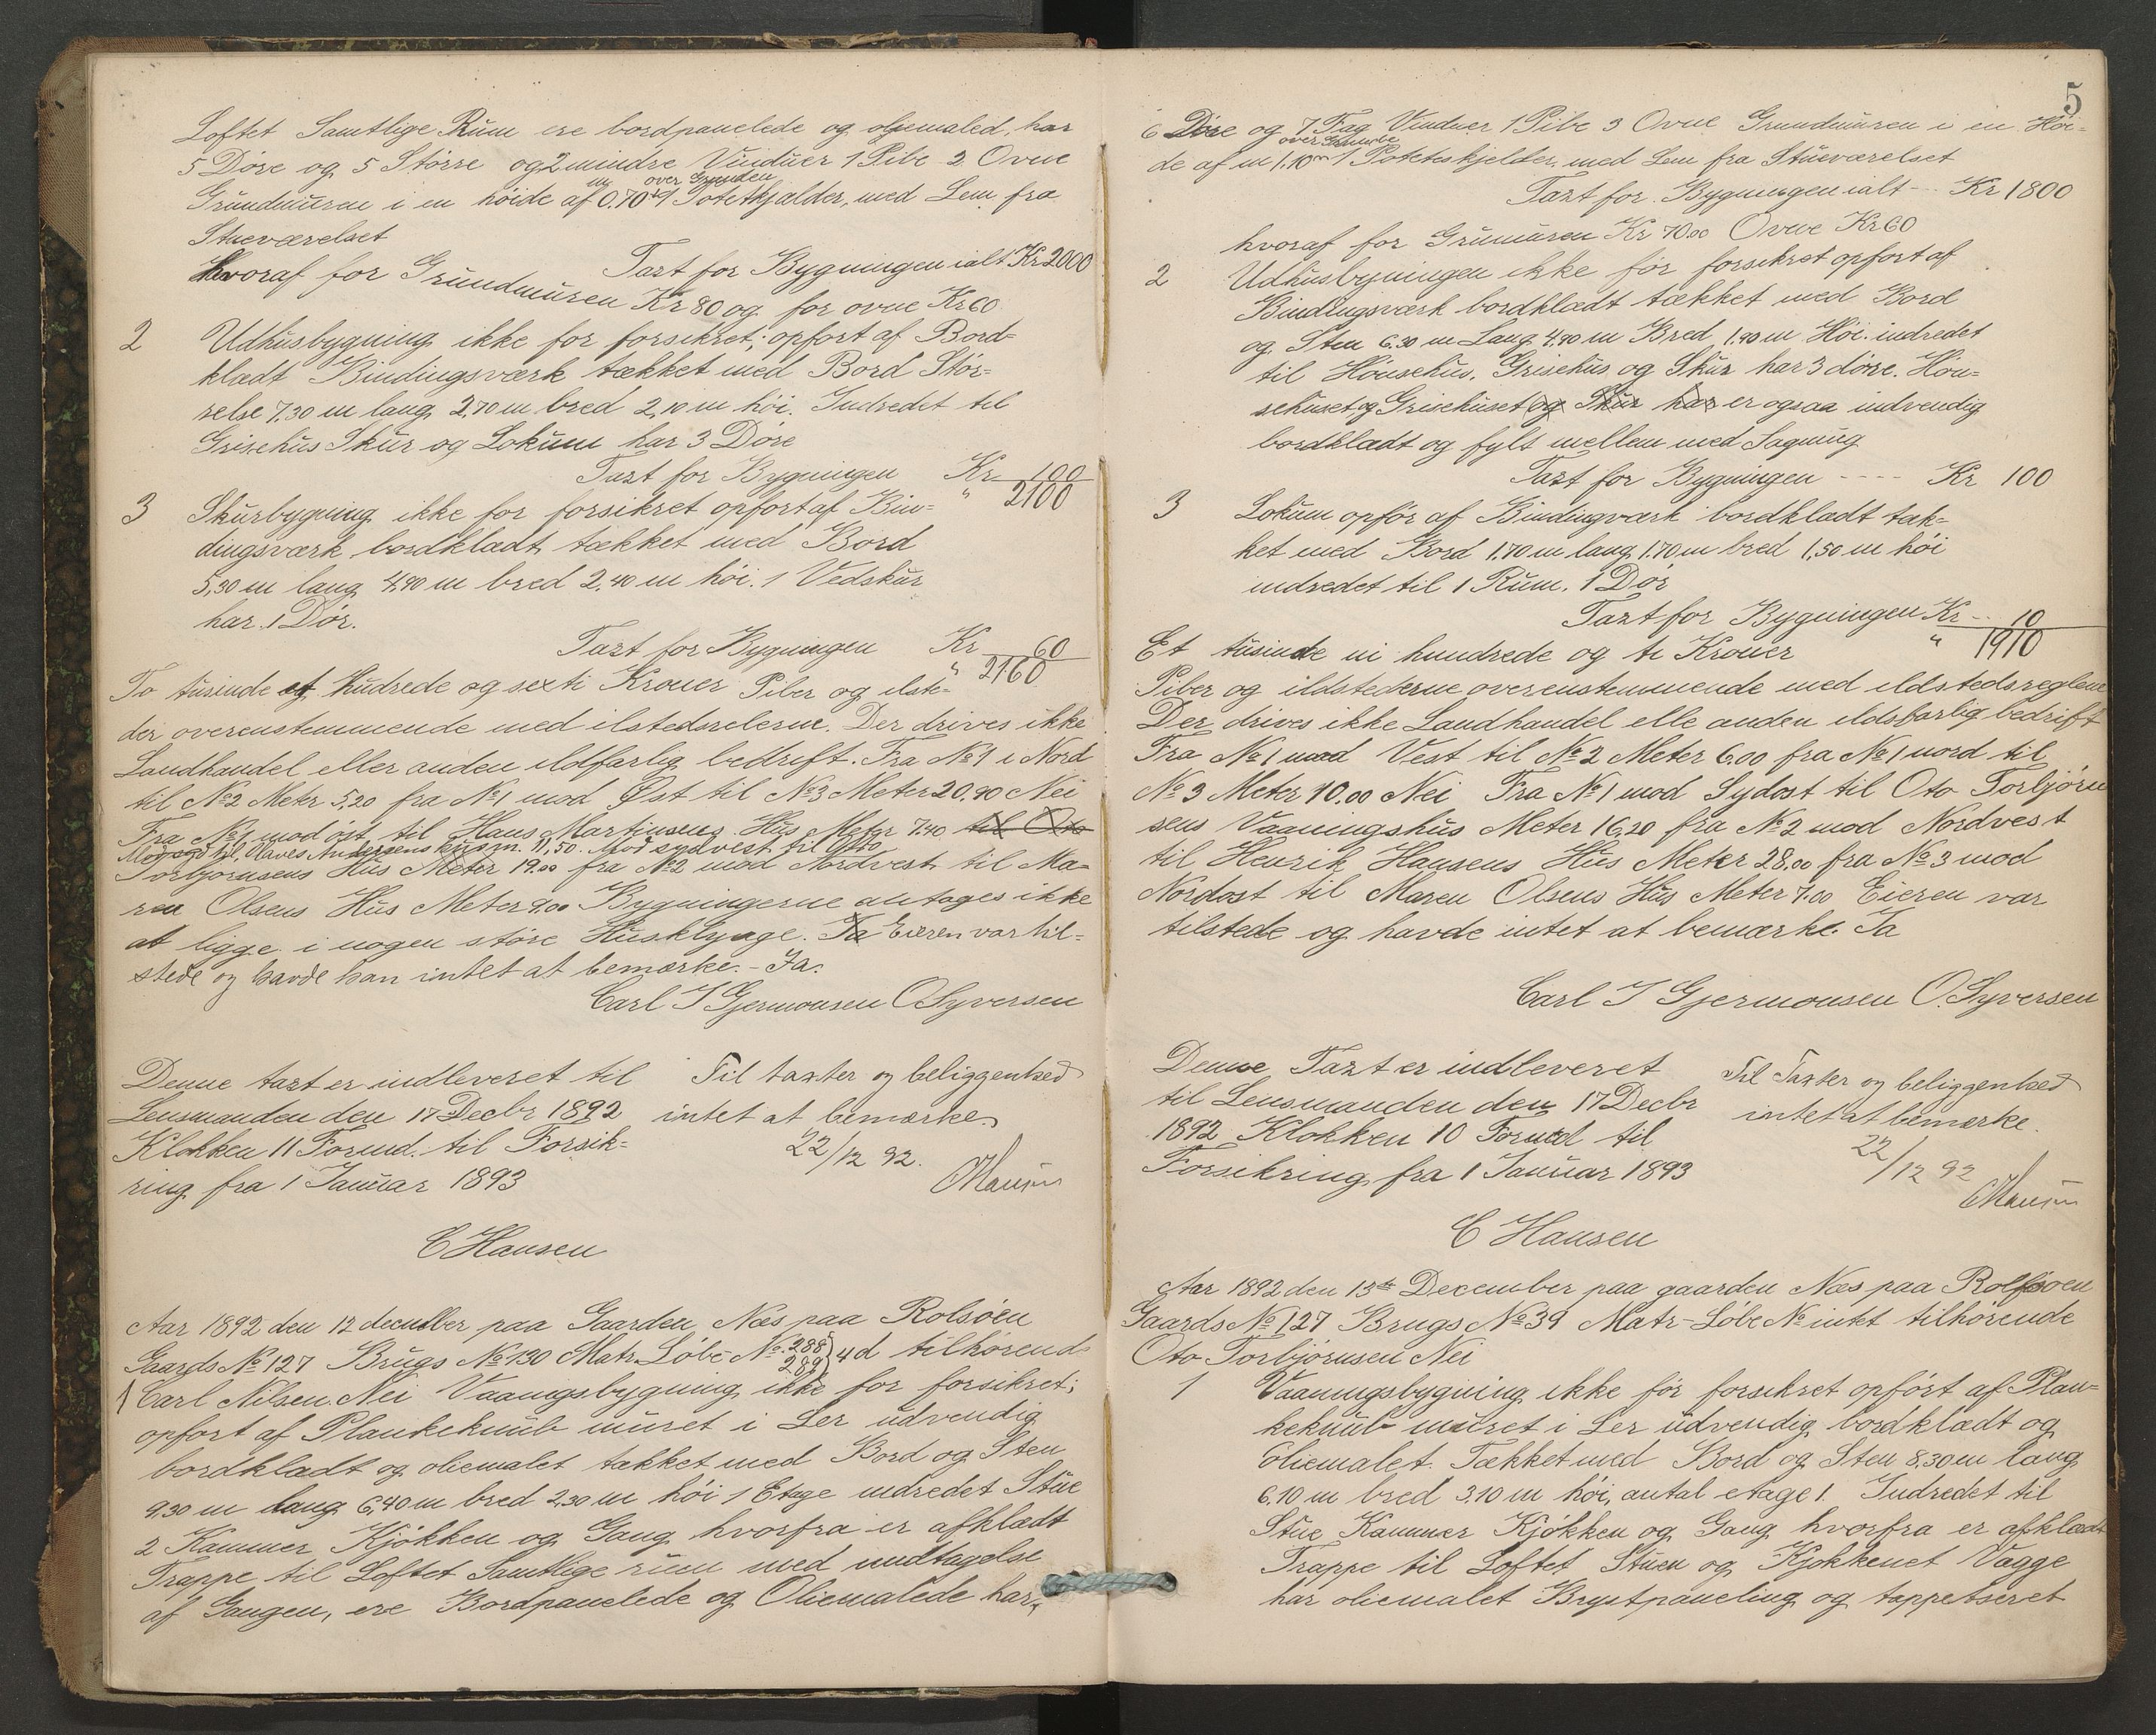 Loftet Samtlige Rum ere bordpanelede og oljemaled, har
5 Döre og 5 Större og 2 mindre Vinduer 1 Pibe 2 Ovne
m over Grunden
Grundmuren i en höide af 0.70 1 Potetkjælder, med Lem fra
Stueværelset
Taxt for Bygningen ialt Kr 2000
Hvoraf for Grundmuren Kr 80 og for ovne Kr 60
2 Udhusbygning ikke for forsikret; opfort af Bord-
klædt Bindingsværk tækket med Bord Stör-
relse 7,30 m lang 2,70 m bred 2,10 m höi. Indredet til
Grisehus Skur og Lokum har 3 Döre
Taxt for Bygningen Kr 100
" 2100
3 Skurbygning ikke for forsikret opfort af Bin-
dingsværk bordklædt tækket med Bord
5,30 m lang 4,90 m bred 2,40 m höi. 1 Vedskur
har 1 Dör.
Taxt for Bygningen Kr 60
" 2160
To tusinde et Hudrede og sexti Kroner Piber og ilste-
der overenstemmende med ilstedsrelerne. Der drives ikke
Landhandel eller anden ildfarlig bedrift. Fra No 1 i Nord
til No 2 Meter 5,20 fra No 1 mod Øst til No 3 Meter 20,90 Nei
Fra No 1 mod öst til Hans Martinsens Hus Meter 7.40 til Oto
Mod syd til Olaves Andersens hus m. 11,50. Mod sydvest til Otto
Torbjornsens Hus Meter 19.00 fra No 2 mod Nordvest til Ma-
ren Olsens Hus Meter 9.00 Bygningerne antages ikke
at ligge i nogen störe Husklynge. Ja Eieren var til-
stede og havde han intet at bemærke. - Ja.
Carl J Gjermonsen O Syversen
Denne taxt er indleveret til
Lensmanden den 17 Decbr 1892
Klokken 11 Formd. til Forsik-
ring fra 1 Januar 1893
Til taxter og beliggenhed
intet at bemærke.
22/12 92.
C Hansen
Aar 1892 den 12 december paa Gaarden Næs paa Rolsöen
Gaards No 127 Brugs No 130 Matr. Löbe No. 288 289) 4d tilhörend
1 Carl Nilsen. Nei Vaanigsbygning ikke for forsikret;
opfort af Plankeknub muret i Ler udvendig
bordklædt og oliemalet tækket med Bord og Sten
9,30 m lang 6,40 m bred 2,30 m höi 1 Etage indredet Stue
2 Kammer Kjökken og Gang hvorfra er afklædt
Trappe til Loftet Samtlige rum med undtagelse
af Gangen, ere Bordpanelede og Oliemalede har
5
6 Döre og 7 Fag Vinduer 1 Pibe 3 Ovne Grundmuren i en Höi-
over Grunde
de af m 1.10 m 1 Poteteskjelder, med Lem fra Stueværelset
Taxt for Bygningen ialt Kr 1800
hvoraf for Grumuren Kr 70.00 Ovne Kr 60
2 Udhusbyningen ikke för forsikret opfort af
Bindingsværk bordklædt tækket med Bord
og Sten 6.30 m Lang 4.90 m Bred 1.90 m Höi. indredet
til Hönsehus, Grisehus og Skur har 3 döre. Hön-
sehuset og Grisehuset og Skur har er ogsaa indvendig
bordklædt og fylt mellem med Sagmug
Taxt for Bygningen ---- Kr 100
3 Lokum opför af Bindingværk bordklædt tæk-
ket med Bord 1.70 m lang 1.70 m bred 1,50 m höi
indredet til 1 Rum. 1 Dör
Taxt for Bygningen Kr 10
" 1910
Et tusinde ni hundrede og ti Kroner
Piber og ildstederne overenstemmende med ildstedsreglene
Der drives ikke Landhandel elle anden ildsfarlig bedrift
Fra No 1 mod Vest til No 2 Meter 6.00 fra No 1 nord til
No 3 Meter 10.00 Nei Fra No 1 mod Sydost til Oto Torbjörn
sens Vaaningshus Meter 16,20 fra No 2 mod Nordvest
til Henrik Hansens Hus Meter 28.00 fra No 3 mod
Nordost til Maren Olsens Hus Meter 7.00 Eieren var
tilstede og havde intet at bemærke. Ja
Carl J Gjermonsen O. Syversen
Denne Taxt er indleveret
til Lensmanden den 17 Decbr
1892 Klokken 10 Formd til
Forsikring fra 1 Januar 1893
Til Taxter og beliggenhed
intet at bemærke.
22/12 92
C Hansen
Aar 1892 den 13de December paa gaarden Næs paa Rolfsöen
Gaards No 127 Brugs No 39 Matr-Löbe No intet tilhörende
Oto Torbjörnsen Nei
1 Vaaningsbygning ikke för forsikret opfört af Plan-
keknub muret i Ler udvendig bordklædt og
Oliemalet. Tækket med Bord og Sten 8.30 m lang
6.10 m bred 3.10 m höi, antal etage 1. Indredet til
Stue Kammer Kjökken og Gang hvorfra er afklædt
Trappe til Loftet Stuen og Kjökkenet Vægge
har oliemalet Brystpaneling og tappetseret